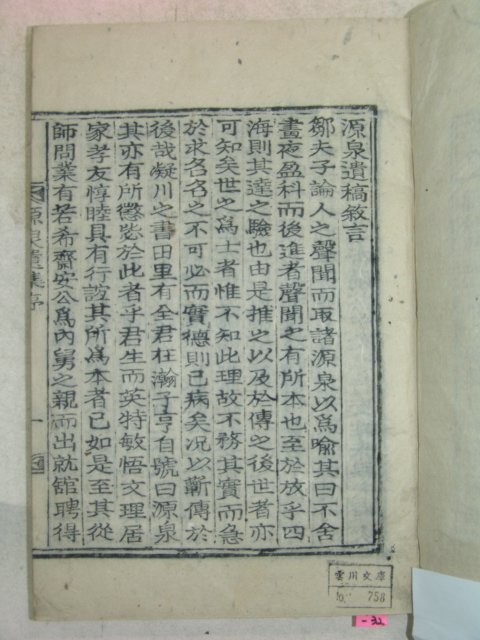 源泉遺稿敘言
鄒夫子論人之聲聞而取諸源泉以爲喩其曰不舍
晝夜盈科而後進者聲聞之有所本也至於放乎四
海則其達之驗也由是推之以及於傳之後世者亦
可知矣世之爲士者惟不知此理故不務其實而急
於求名名之不可必而實德則已病矣况以蘄傳於
後哉凝川之書田里有全君在瀚子亨自號曰源泉
其亦有所懲毖於此者乎君生而英特敏悟文理居
家孝友惇睦具有行誼其所爲本者已如是至其從
師問業有若希齋安公爲內舅之親而出就舘聘得
源泉遺集序
一
雲川文庫
No. 758
-32